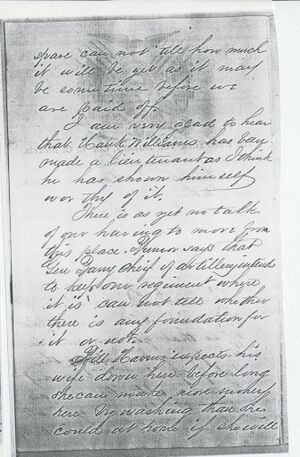 spare can not tell how much
it will be yet as it may
be some time before we
are paid off
I am very glad to hear
that Hank Williams has been
made a lieutenant as I think
he has shown himself
worthy of it.
There is as yet no talk
of our having to move from
this place. Rumor says that
Gen Barry Chief of artillery intends
to keep our regiment where
it is can not tell whether
there is any foundation for
it or not.
Bill expects his
wife down here before long
she can make more money
here by washing than she
could at home if she will